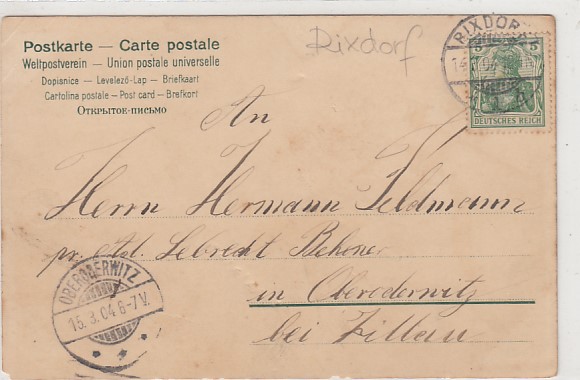 Postkarte — Carte postale
Weltpostverein — Union postale universelle
Dopisnice — Levelező-Lap — Briefkaart
Cartolina postale — Post card — Brefkort
Открытое-письмо
Rixdorf
RIXDORF
14
5 5
DEUTSCHES REICH
An
Herrn Hermann Feldmann
pr. Ad. Lebrecht
in Oberoderwitz
bei Zittau
OBERODERWITZ
15.3.04 6-7V.